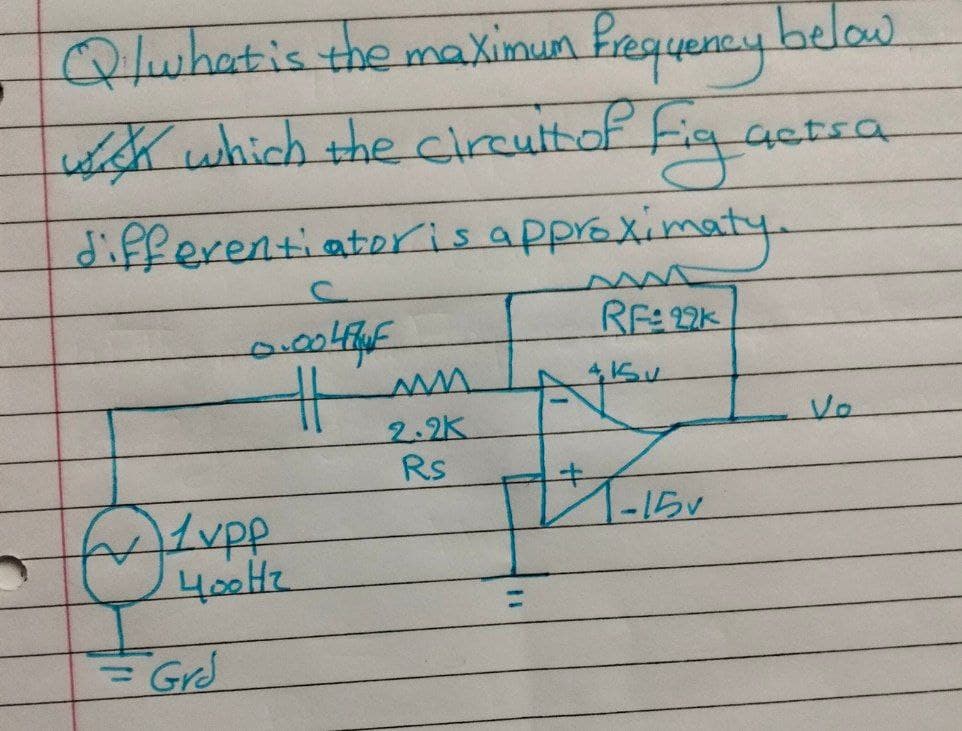 Q/what is the maximum frequency below
which the circuit of Fig acts a
differentiator is approximaty.
C
0.0047µF
RF= 22K
+15v
2.2K
Rs
-
+
Vo
-15v
1vpp
400Hz
Grd